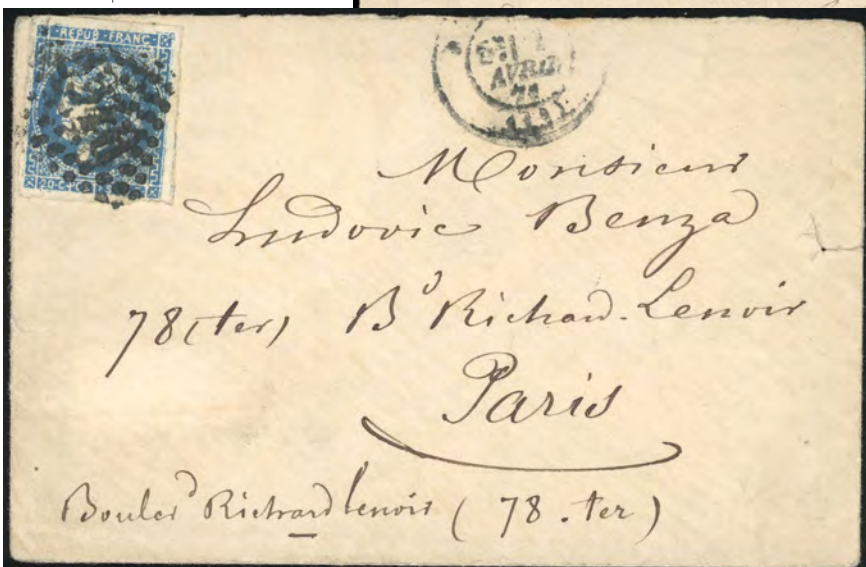 REPUB·FRANC·
AVRIL
71
Monsieur
Ludovic Benza
78 (ter) Bd Richard-Lenoir
Paris
Boulerd Richard Lenoir ( 78 . ter )